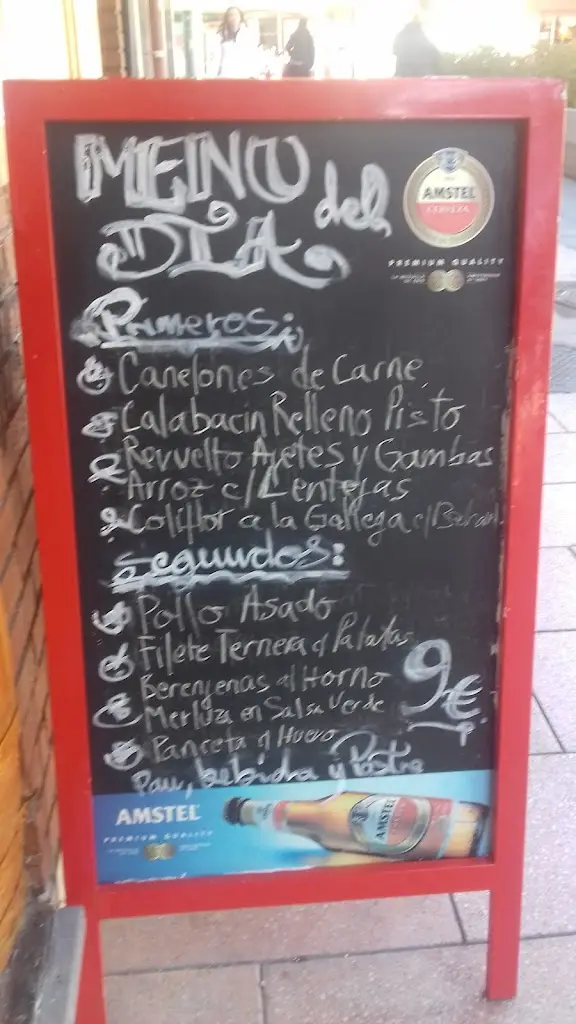 MENU del
DIA
AMSTEL
CERVEZA
PREMIUM QUALITY
Primeros:
Canelones de Carne
Calabacin Relleno Pisto
Revuelto Ajetes y Gambas
Arroz c/ Lentejas
Coliflor a la Gallega c/
Segundos:
Pollo Asado
Filete Ternera c/ Patatas
Berenjenas al Horno
Merluza en Salsa Verde
Panceta c/ Huevo
9€
Pan, bebida y Postre
AMSTEL
PREMIUM QUALITY
AMSTEL